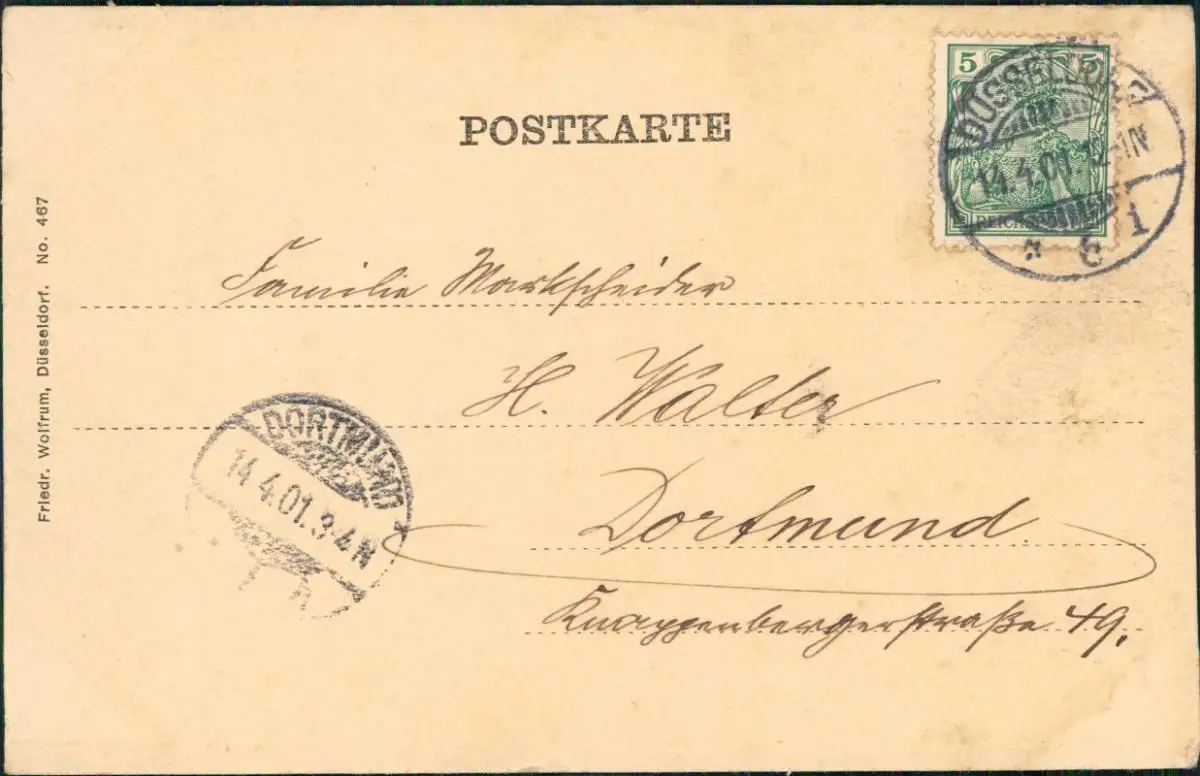 POSTKARTE
5 5
REICHSPOST
5
DÜSSELDORF
14.4.01.12-1N
* 6 i
Familie Markscheider
H. Walter
Dortmund
Knappenbergerstraße 49.
DORTMUND
14.4.01.3-4N
Friedr. Wolfrum, Düsseldorf. No. 467